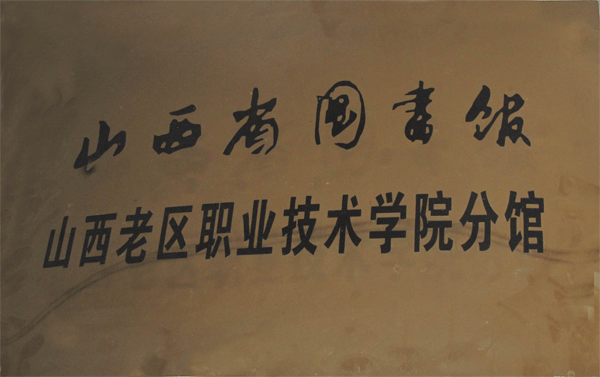 山西省图书馆
山西老区职业技术学院分馆